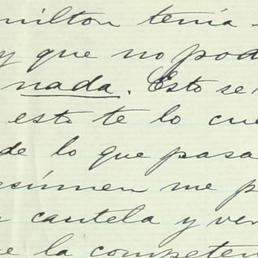 milton tenía
y que no pod
nada. Esto se
esto te lo cue
de lo que pasa
esúmen me p
cautela y ver
e la competen